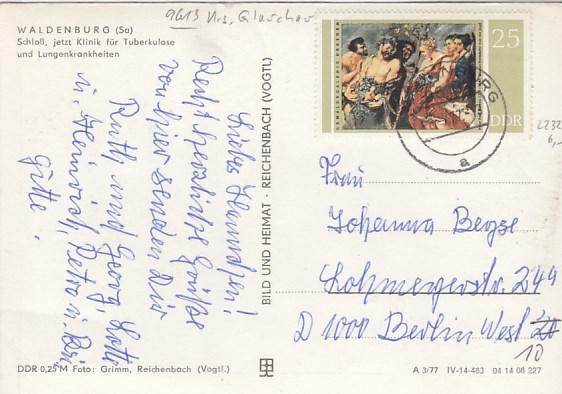 9613 Krs. Glauchau
WALDENBURG (Sa)
Schloß, jetzt Klinik für Tuberkulose
und Lungenkrankheiten
Liebes Hannchen!
Recht herzliche Grüße
von hier senden Dir
Ruth und Georg, Lotte
u. Heinrich, Petra u.
Gitte.
BILD UND HEIMAT · REICHENBACH (VOGTL)
25
DDR
BURG
a
2232
6,-
Frau
Johanna Beyse
Lohmeyerstr. 24
D 1000 Berlin West 20
10
DDR 0,25 M Foto: Grimm, Reichenbach (Vogtl.)
A 3/77 IV-14-483 04 14 08 227